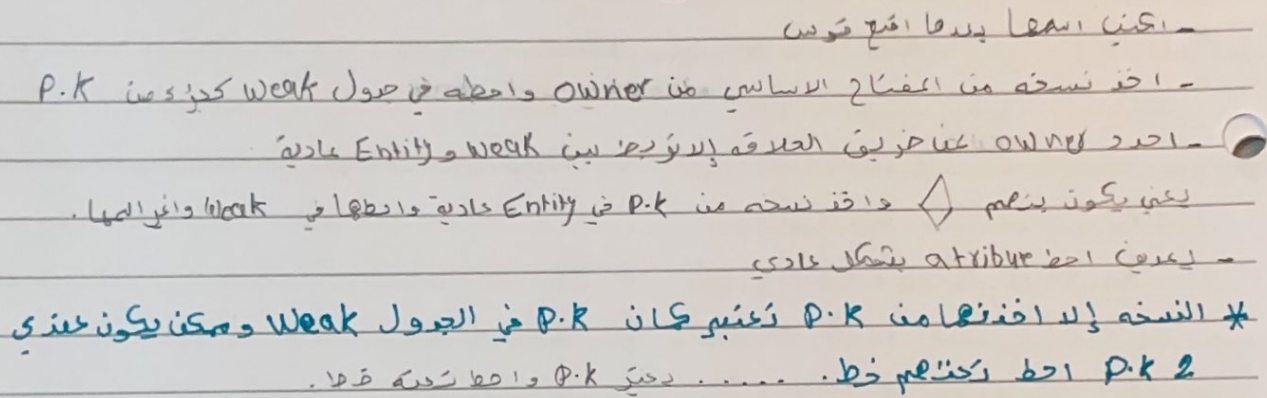 - اكتب اسمها بعدها افتح قوس
- اخذ نسخه من المفتاح الاساسي من owner واحطه في جدول weak كجزء من P.K
- احدد owner عن طريق العلاقه إلا تربط بين weak و Entity عادية
يعني يكون بينهم ◇ واخذ نسخه من P.K في Entity عادية واحطها في Weak
- بعدين احط atribute بشكل عادي
* النسخه إلا اخذتها من P.K تعتبر كمان P.K في الجدول weak وممكن يكون عندي
2 P.K احط تحتهم خط. ..... P.K واحط تحته خط.